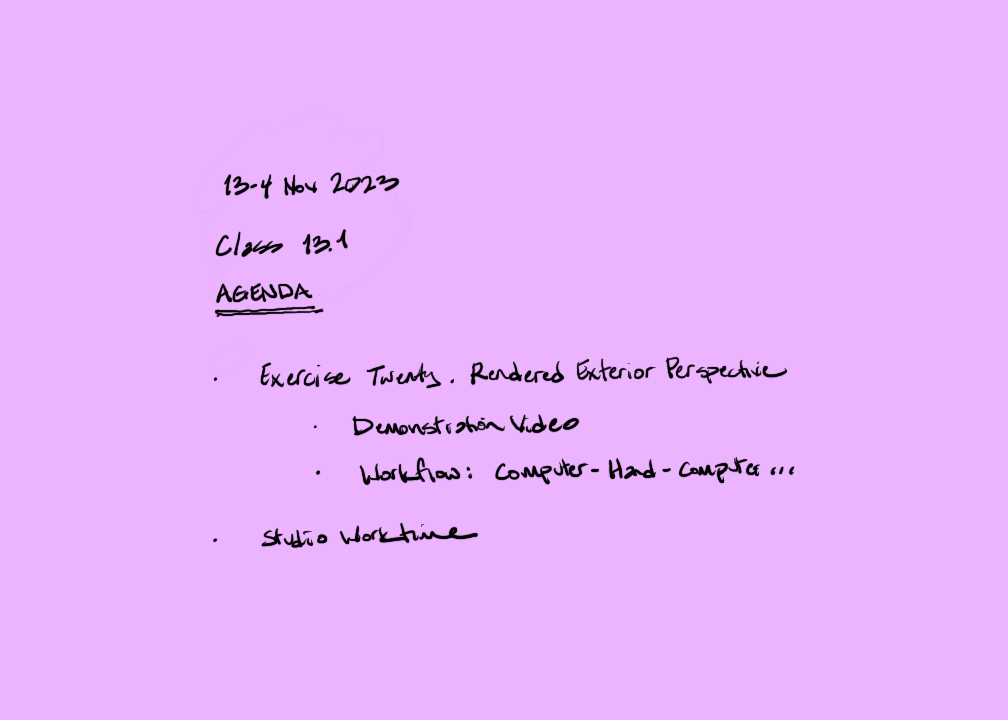 13-4 Nov 2023
Class 13.1
AGENDA
· Exercise Twenty. Rendered Exterior Perspective
· Demonstration Video
· Workflow: Computer-Hand-Computer...
· Studio Worktime